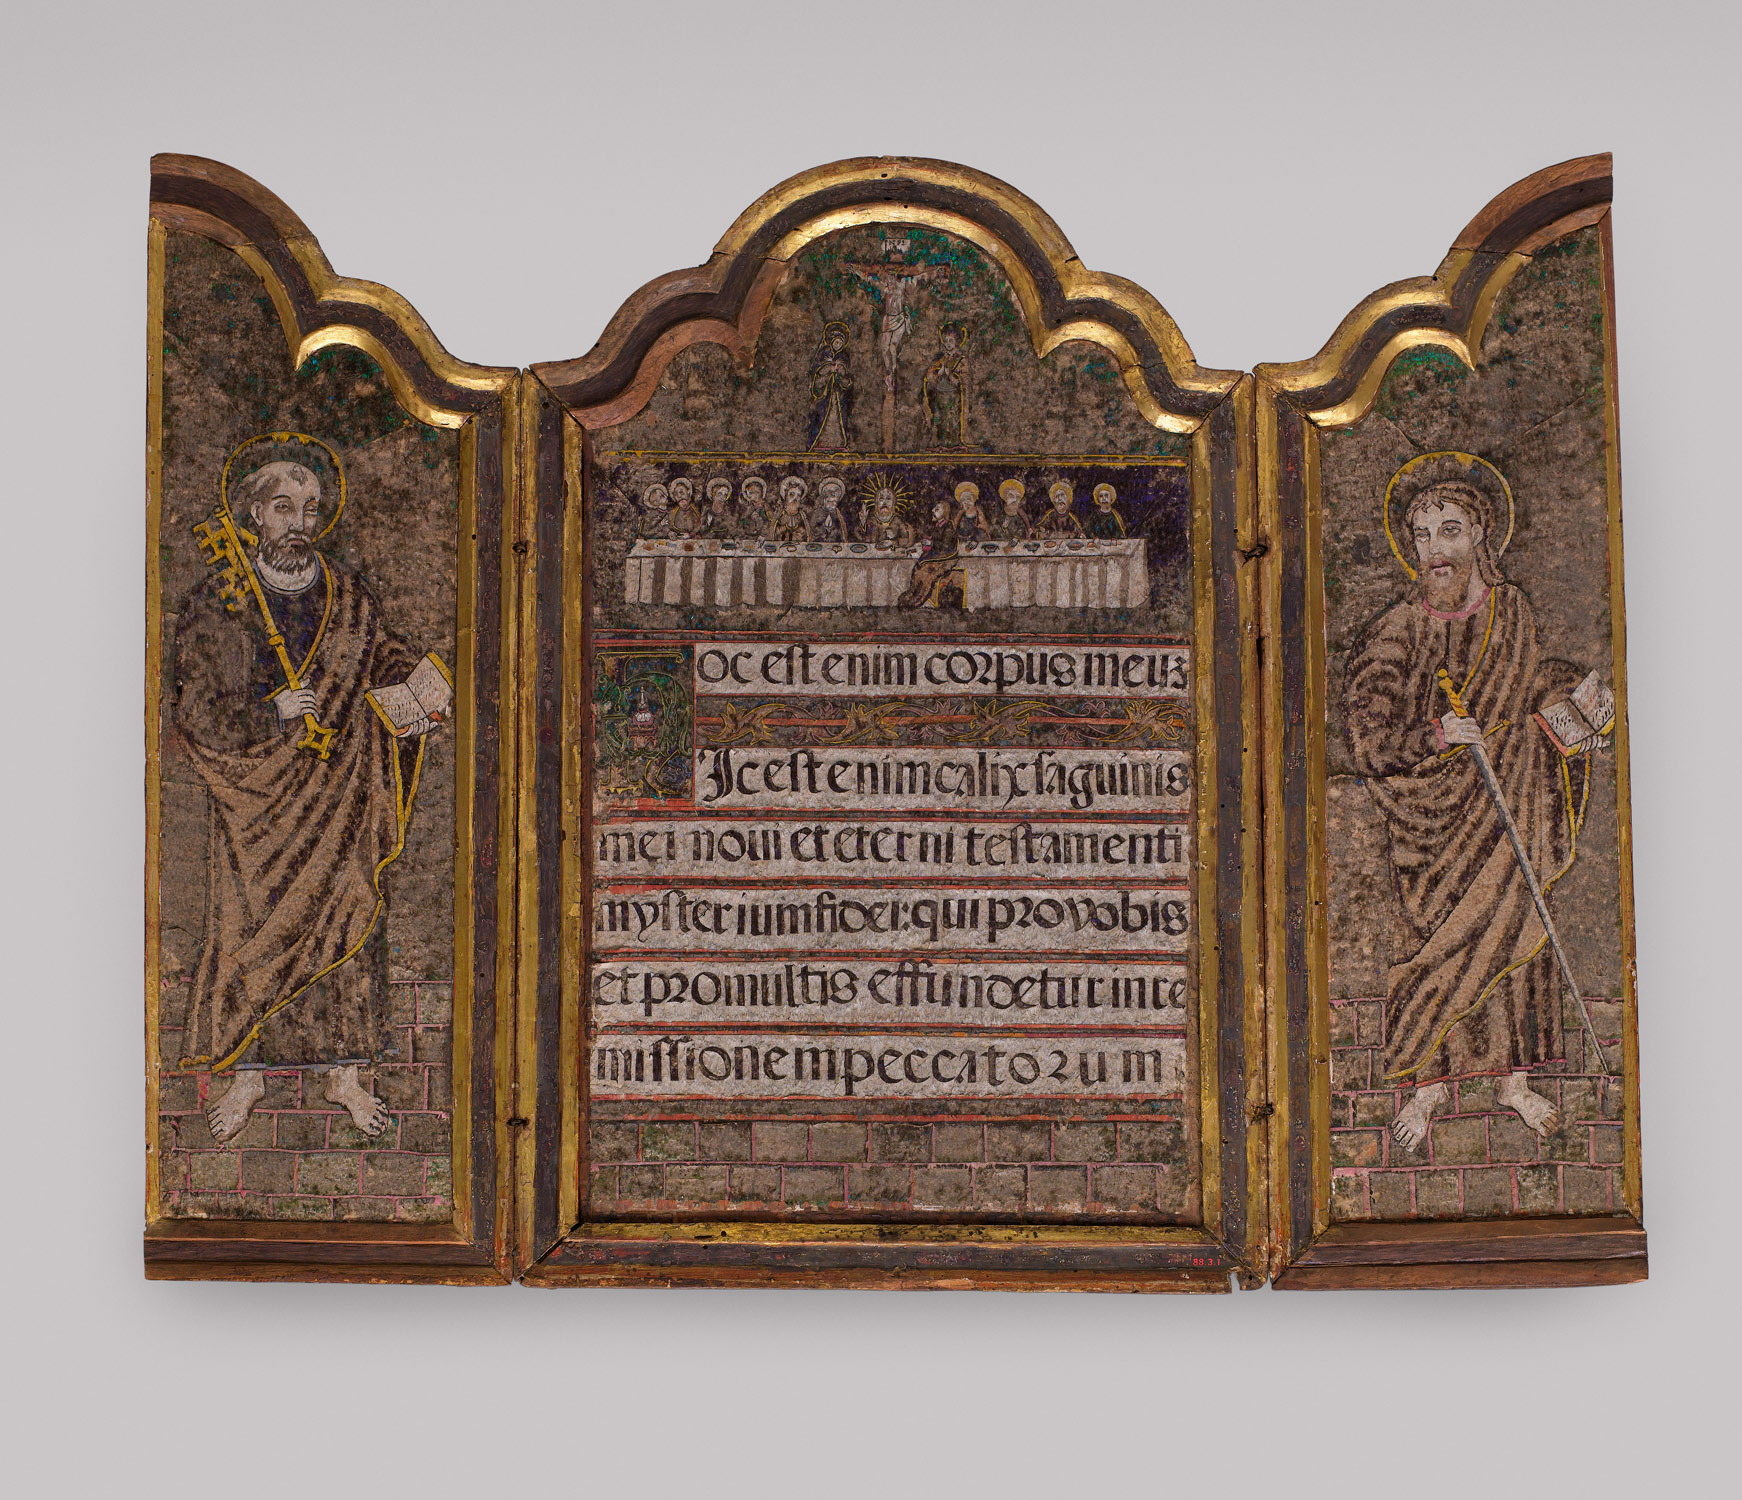 INRI
Hoc est enim corpus meuz
Hic est enim calix saguinis
mei noui et eterni testamenti
mysterium fidei: qui pro vobis
et pro multis effundetur in re
missionem peccatorum
88.3.1